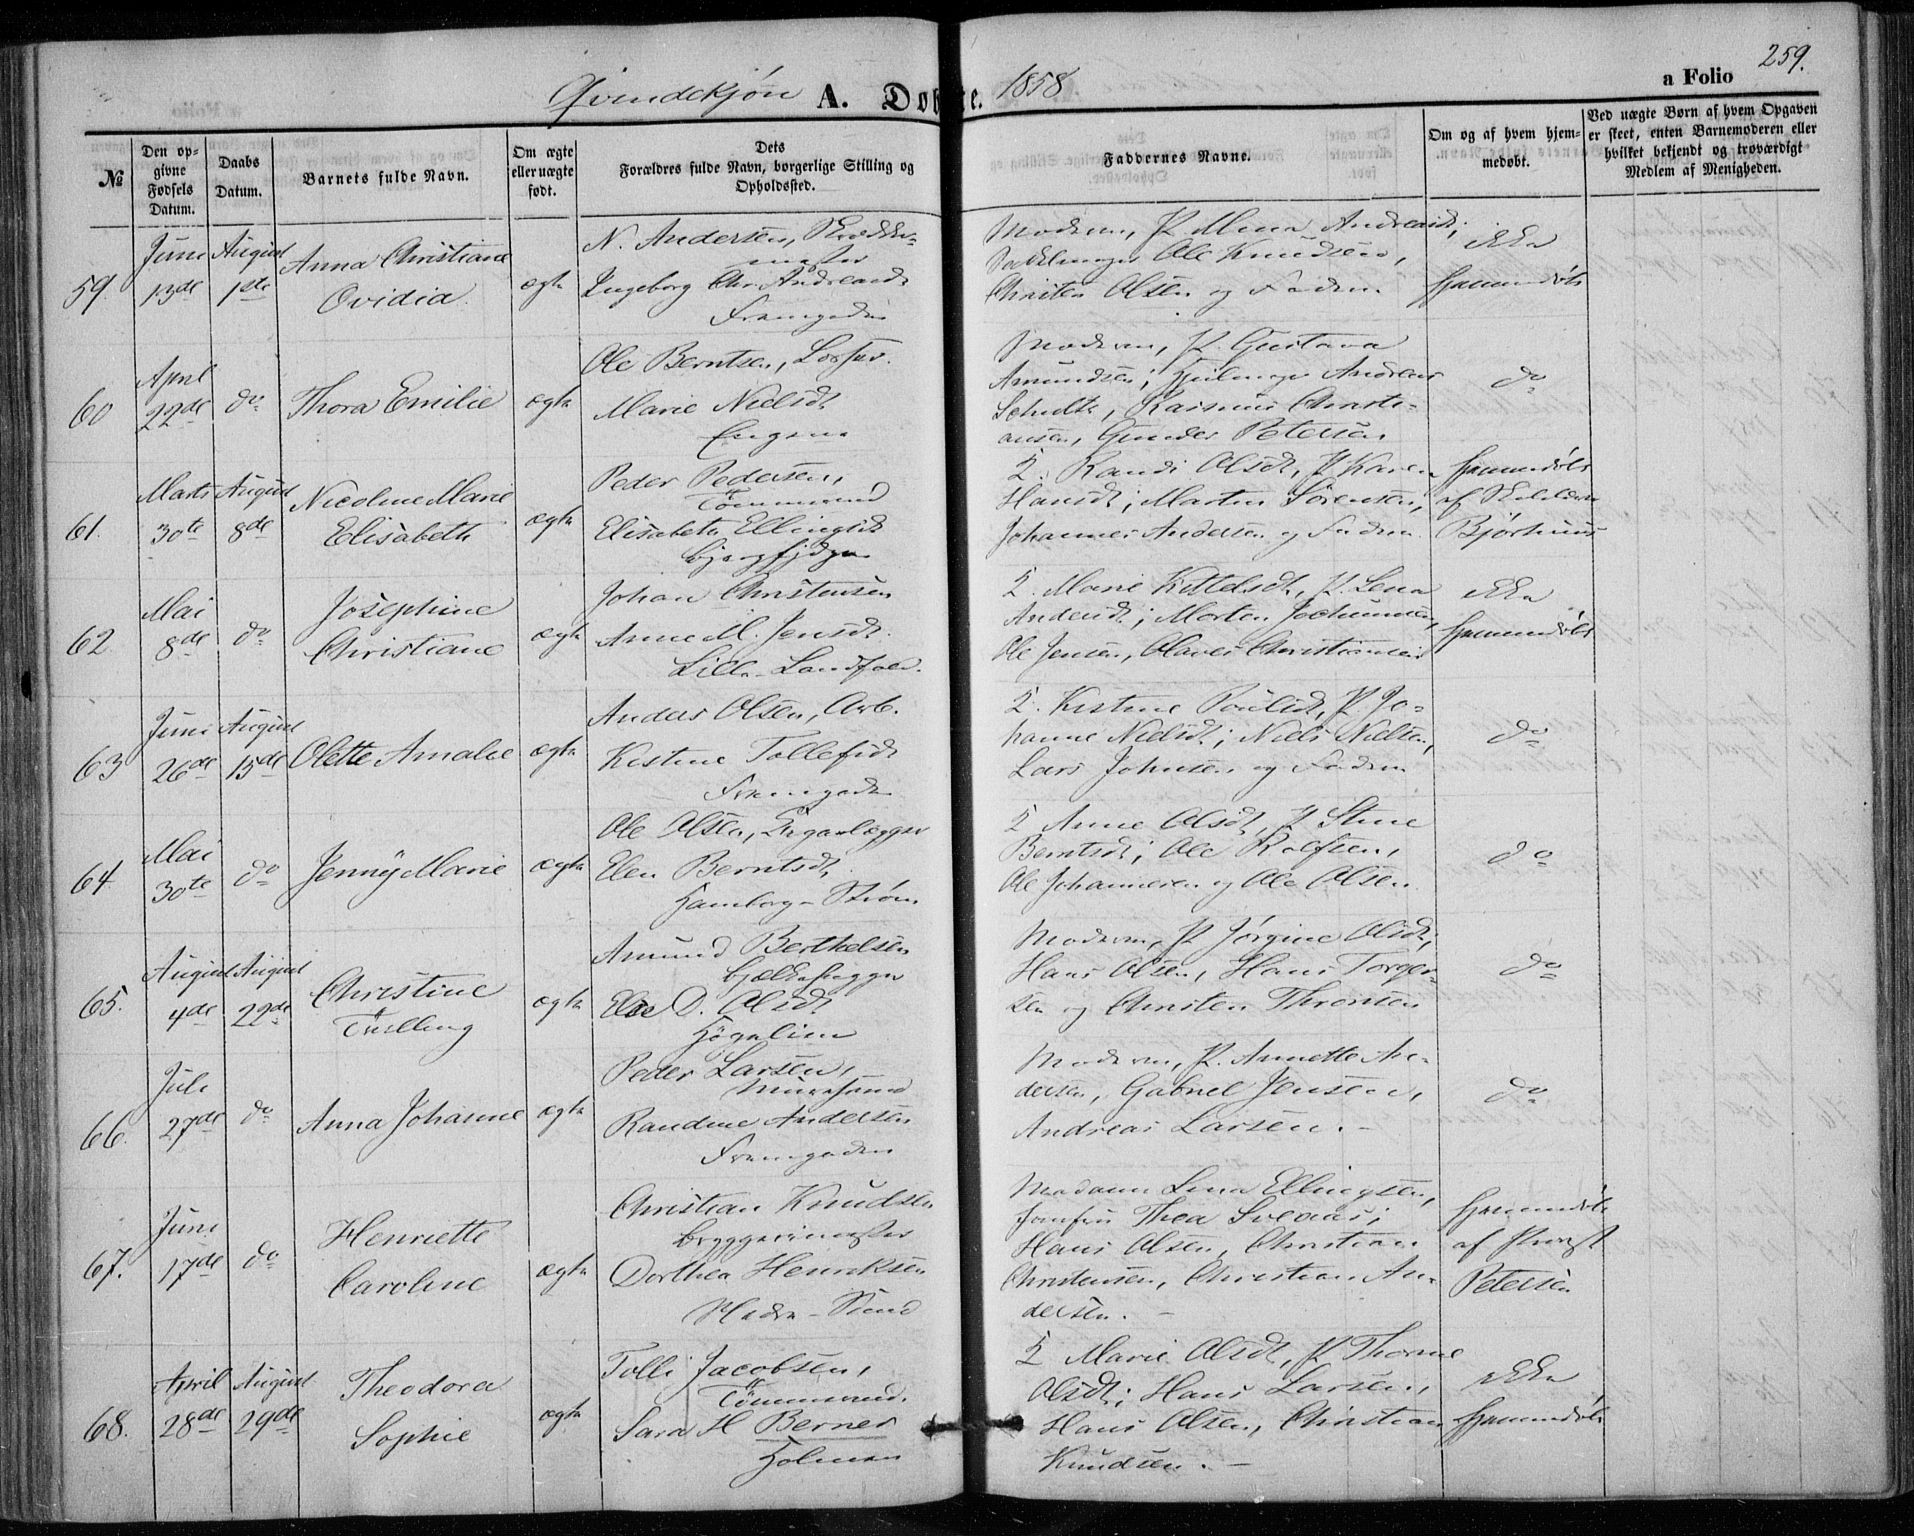 259.
Qvindekjøn A. Døbte. 1858 a Folio
№
Den opgivne Fødsels Datum.
Daabs Datum.
Barnets fulde Navn.
Om ægte eller uægte født.
Dets Forældres fulde Navn, borgerlige Stilling og Opholdssted.
Faddernes Navne.
Om og af hvem hjemmedøbt.
Ved uægte Børn af hvem Opgaven er skeet, enten Barnemoderen eller hvilket bekjendt og troværdigt Medlem af Menigheden.
59.
Juni
13de
August
1ste
Anna Christiane
Ovidia
ægte
N. Andersen, Skrædder-
mester
Ingeborg Chr. Andreasdt
Framgaden
Moderen, P. Mina Andreasdt;
Ole Knudsen,
Christen Olsen og Faderen
ikke
hjemmedøbt
60
April
22de
do
Thora Emilie
ægte
Ole Berntsen,
Marie Nielsdt
Engene
Moderen, P. Gustava
Amundsen; Andreas
Schulte, Rasmus Christi-
ansen, Gunder Petersen
do
61.
Marts
30te
August
8de
Nicoline Marie
Elisabeth
ægte
Peder Pedersen,
Tömmermd
Elisabeth Ellingsdt
Bjergfjdgen
K. Randi Olsdt, P. Karen
Hansdt; Morten Sörensen,
Johannes Andersen og Faderen
hjemmedøbt
af Skolelærer
Bjørhuus
62
Mai
8de
do
Josephine
Christiane
ægte
Johan Christensen
Anne M. Jensdt.
Lille Landfald.
K. Marie Kittelsdt, P. Lena
Andersdt; Morten Jochumsen,
Ole Jensen, Olaves Christiansen
ikke
hjemmedøbt
63
Juni
26de
August
15de
Olette Amalie
ægte
Anders Olsen, Arb.
Kistine Tollefsdt
Framgaden
K. Kistine Poulsdt, P Jo-
hanne Nielsdt; Niels Nielsen,
Lars Johnsen og Faderen
do
64
Mai
30te
do
Jenny Marie
ægte
Ole Olsen, Brganlægger
Elen Berntsdt,
Hamborg-Strøm
K Anne Olsdt, P. Stine
Berntsdt; Ole Rolfsen,
Ole Johannesen og Ole Olsen
do
65.
August
4de
August
22de
Christine
Tvilling
ægte
Amund Berthelsen
Bjælkehugger
Else D. Olsdt
Høgalien
Moderen, P Jörgine Olsdt,
Hans Olsen, Hans Torger-
sen og Christen Thronsen
do
66.
Juli
27de
do
Anna Johanne
ægte
Peder Larsen,
Muursvend
Randine Andersen
Framgaden
Moderen, P. Annette An-
dersen, Gabriel Jensen,
Andreas Larsen. -
do
67.
Juni
17de
do
Henriette
Caroline
ægte
Christian Knudsen
Bryggerimester
Dorthea Henriksen
Nedre-Sund
Madam Lina Ellingsen,
Jomfru Thea Svenaas;
Hans Olsen, Christian
Christensen, Christian An-
dersen. -
hjemmedøbt
af Præst
Petersen
68.
April
28de
August
29de
Theodora
Sophie
ægte
Tolli Jacobsen,
Tömmermd.
Sara H Berner
Holmen
K Marie Olsdt, P Thorine
Olsdt; Hans Larsen,
Hans Olsen, Christian
Knudsen. -
ikke
hjemmedøbt